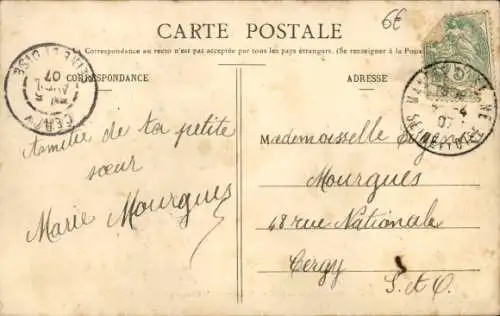 CARTE POSTALE
6€
Correspondance au recto n'est pas acceptée par tous les pays étrangers. (Se renseigner à la Poste
CORRESPONDANCE
ADRESSE
SEINE ET OISE
5
AVRIL
07
CERGY
-4
07
Amitié de ta petite
sœur
Marie Mourgues
Mademoiselle
Mourgues
48 rue Nationale
Cergy
S. et O.